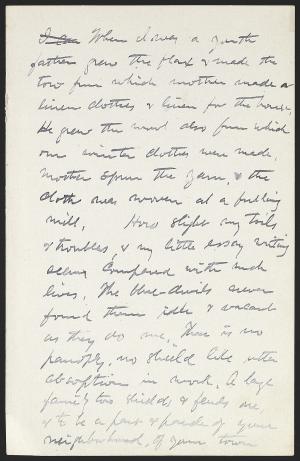 When I was a youth
father grew the flax & made the
tow from which mother made our
linen clothes & linen for the house,
He grew the wool also from which
our winter clothes were made,
mother spun the yarn, & the
cloth was woven at a fulling
mill, How slight my toils
& troubles, & my little essay writing
seems compared with such
lives, The blue-devils never
found them idle & vacant
as they do me, There is no
panoply, no shield like utter
absorption in work, A large
family too shields & fends one,
& to be a part & parcel of your
neighborhood, of your town